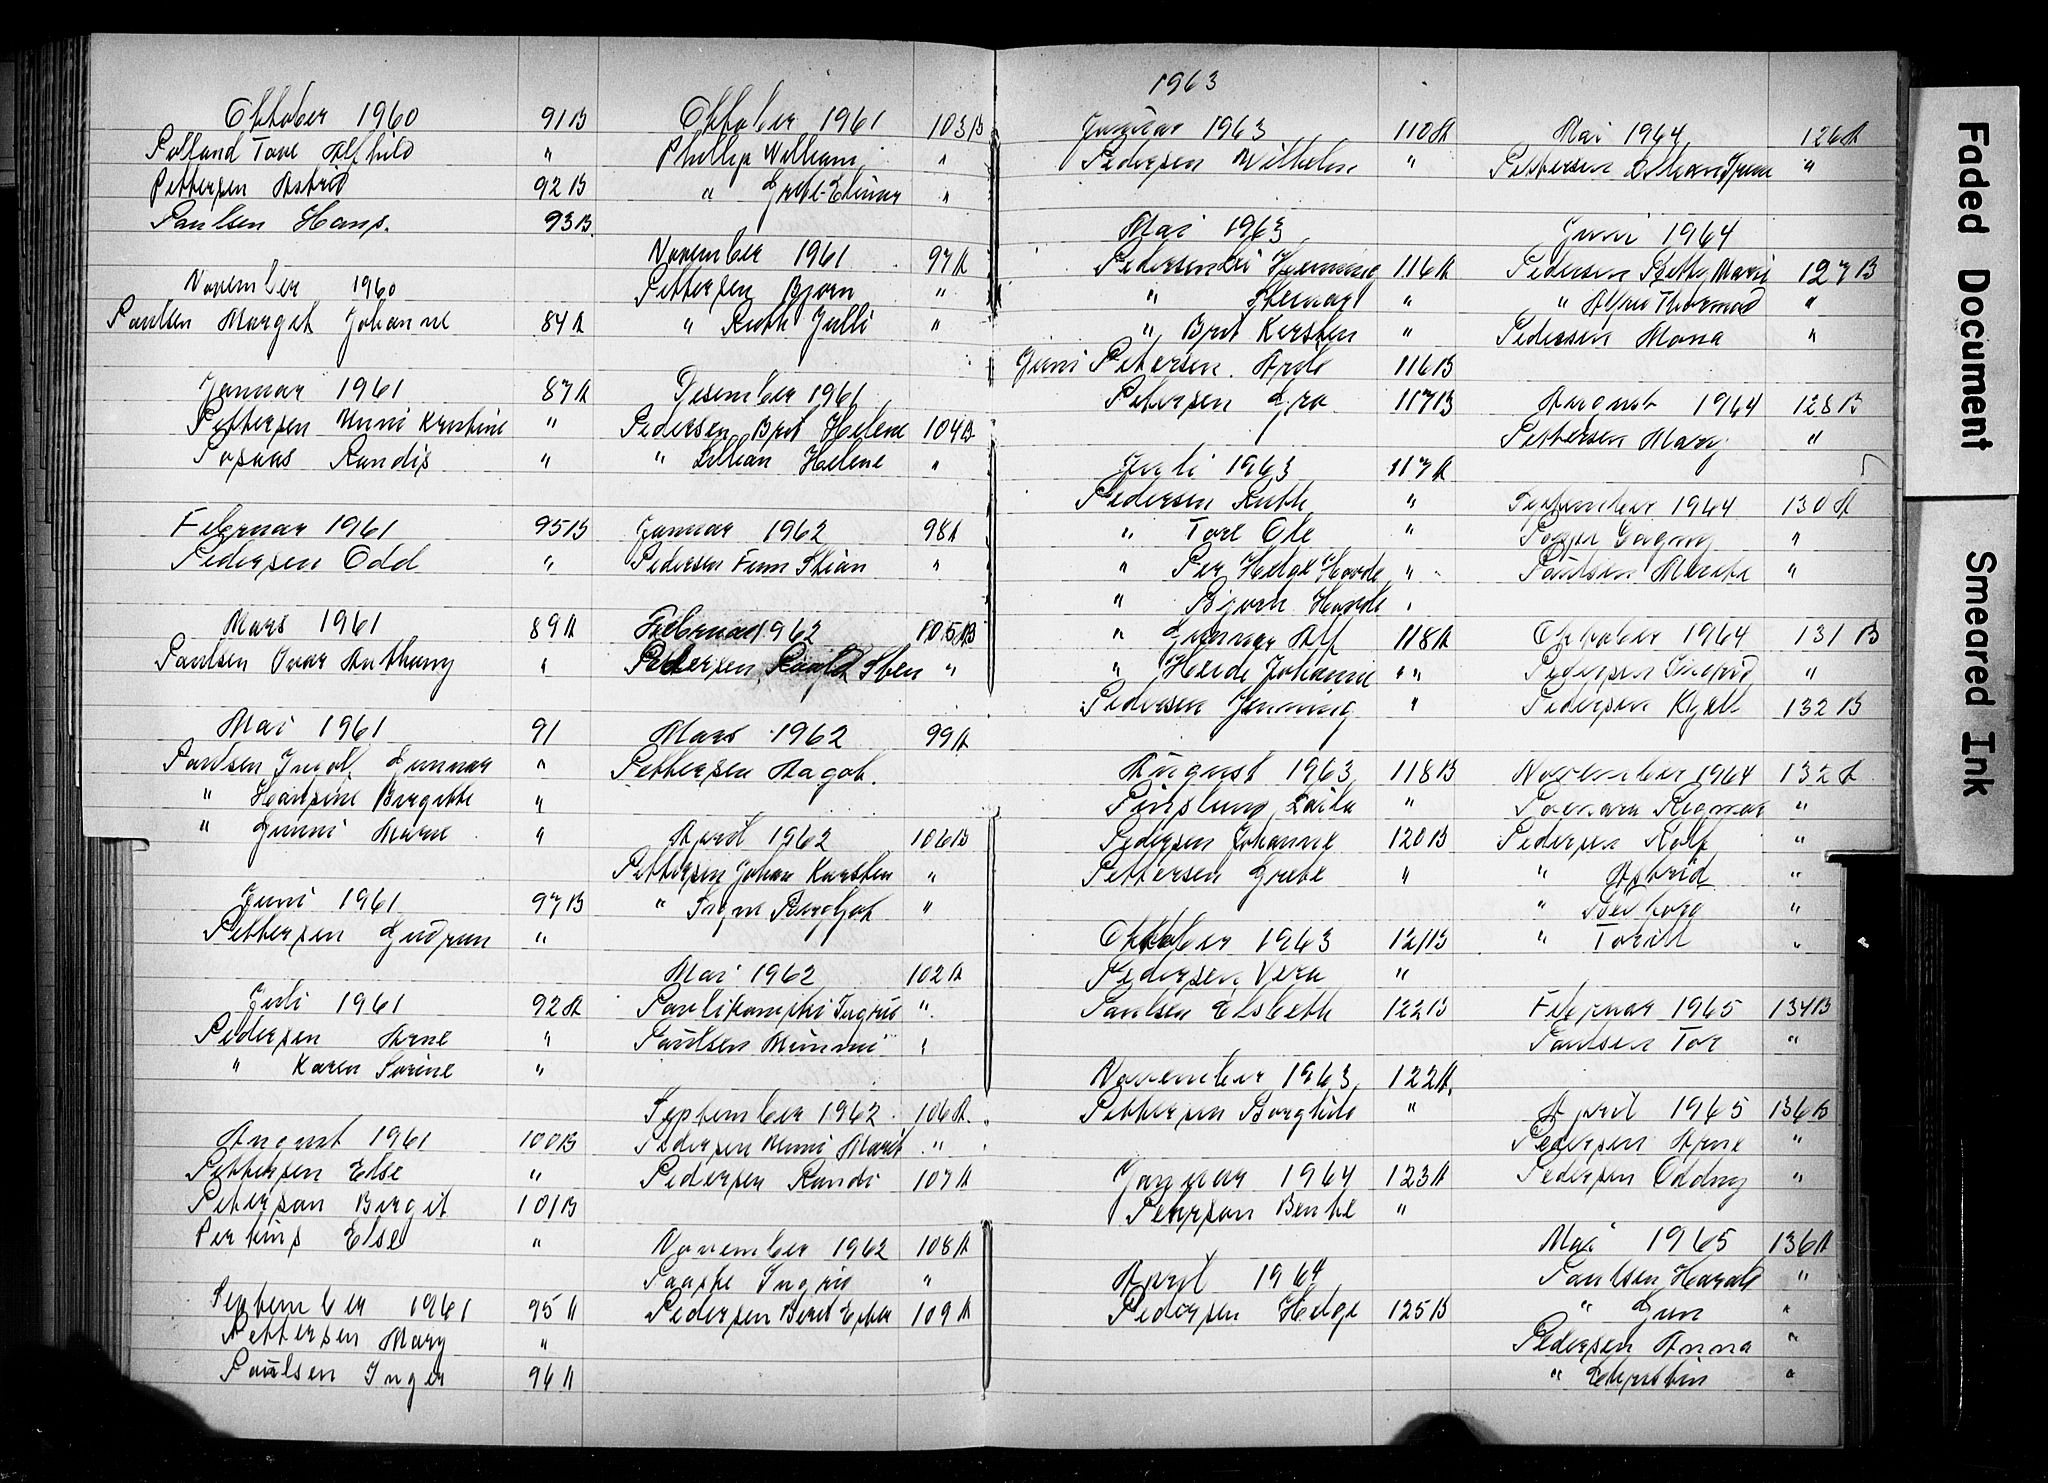 Oktober 1960 91B
Tove Alfhild "
Pettersen Astrid 92B
Paulsen Hans. 93B.
November 1960
Paulsen Marget Johanne 84A
Januar 1961 87A
Pettersen Unni Kristine "
Randis "
Februar 1961 95B
Pedersen Odd "
Mars 1961 89A
Paulsen Ivar Anthony "
Mai 1961 91
Paulsen Gunnar "
" Birgitte "
" Marie "
Juni 1961 97B
Pettersen Gudrun "
Juli 1961 92A
Pedersen Arne "
" Karen Sorine "
August 1961 100B
Pettersen Else "
Peterson Birgit 101B
Perkins Else "
September 1961 95A
Pettersen Mary "
Paulsen Inger 96A
Oktober 1961 103B
Phillip William "
" "
November 1961 97A
Pettersen Bjørn "
" Ruth Julli "
Desember 1961
Pedersen Brit Helene 104B
" Lillian Helene "
Januar 1962 98A
Pedersen Finn Stian "
Februar 1962 105B
Pedersen Sten "
Mars 1962 99A
Pettersen Dagot.
April 1962 106B
Pettersen Johan Karsten "
" Signe Bergljot "
Mai 1962 102A
Ingrid "
Paulsen "
September 1962 106A.
Pedersen Unni Marit "
Pedersen Randi 107A
November 1962 108A
Paaske Ingrid "
Pedersen Berit Ester 109A
1963
Januar 1963 110A
Pedersen Wilhelm "
Mai 1963
Pedersen 116A
" "
" Brit Kirsten "
Juni Petersen. 116B
Petersen Gro 117B
Juli 1963 117A
Pedersen Ruth "
" Tore Ole "
" Per Helge Havde "
" Bjørn Havde "
" Gunnar Alf 118A
" Heide Johanne "
Pedersen Henning "
August 1963 118B
Laila "
Pedersen Johanne 120B
Pettersen Grete "
Oktober 1963 121B
Pedersen Vera "
Paulsen Elsbeth 122B
November 1963 122A.
Pettersen Borghild "
Januar 1964 123A
Pehrson Bente "
April 1964
Pedersen Helge 125B
Mai 1964 126A
Pettersen "
Juni 1964
Pedersen Betty Marie 127B
" Alfred Thormod "
Pedersen Mona "
August 1964 128B
Pettersen Mary "
September 1964 130A
Dagny "
Paulsen Merete "
Oktober 1964 131B
Pedersen Ingfrid "
Pedersen Kjell 132B
November 1964 132A
Ragnar "
Pedersen Rolf "
" Astrid "
" "
" Torill "
Februar 1965 134B
Paulsen Tor "
April 1965 136B
Pedersen Arne "
Pedersen Oddny "
Mai 1965 136A
Paulsen Harald "
" Gun "
Pedersen Anna "
" "
Faded Document
Smeared Ink